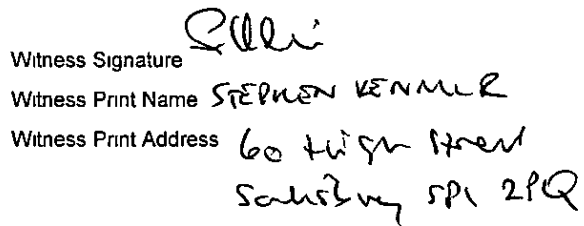 Witness Signature
Witness Print Name STEPHEN
Witness Print Address 60 High Street
Salisbury SP1 2PQ